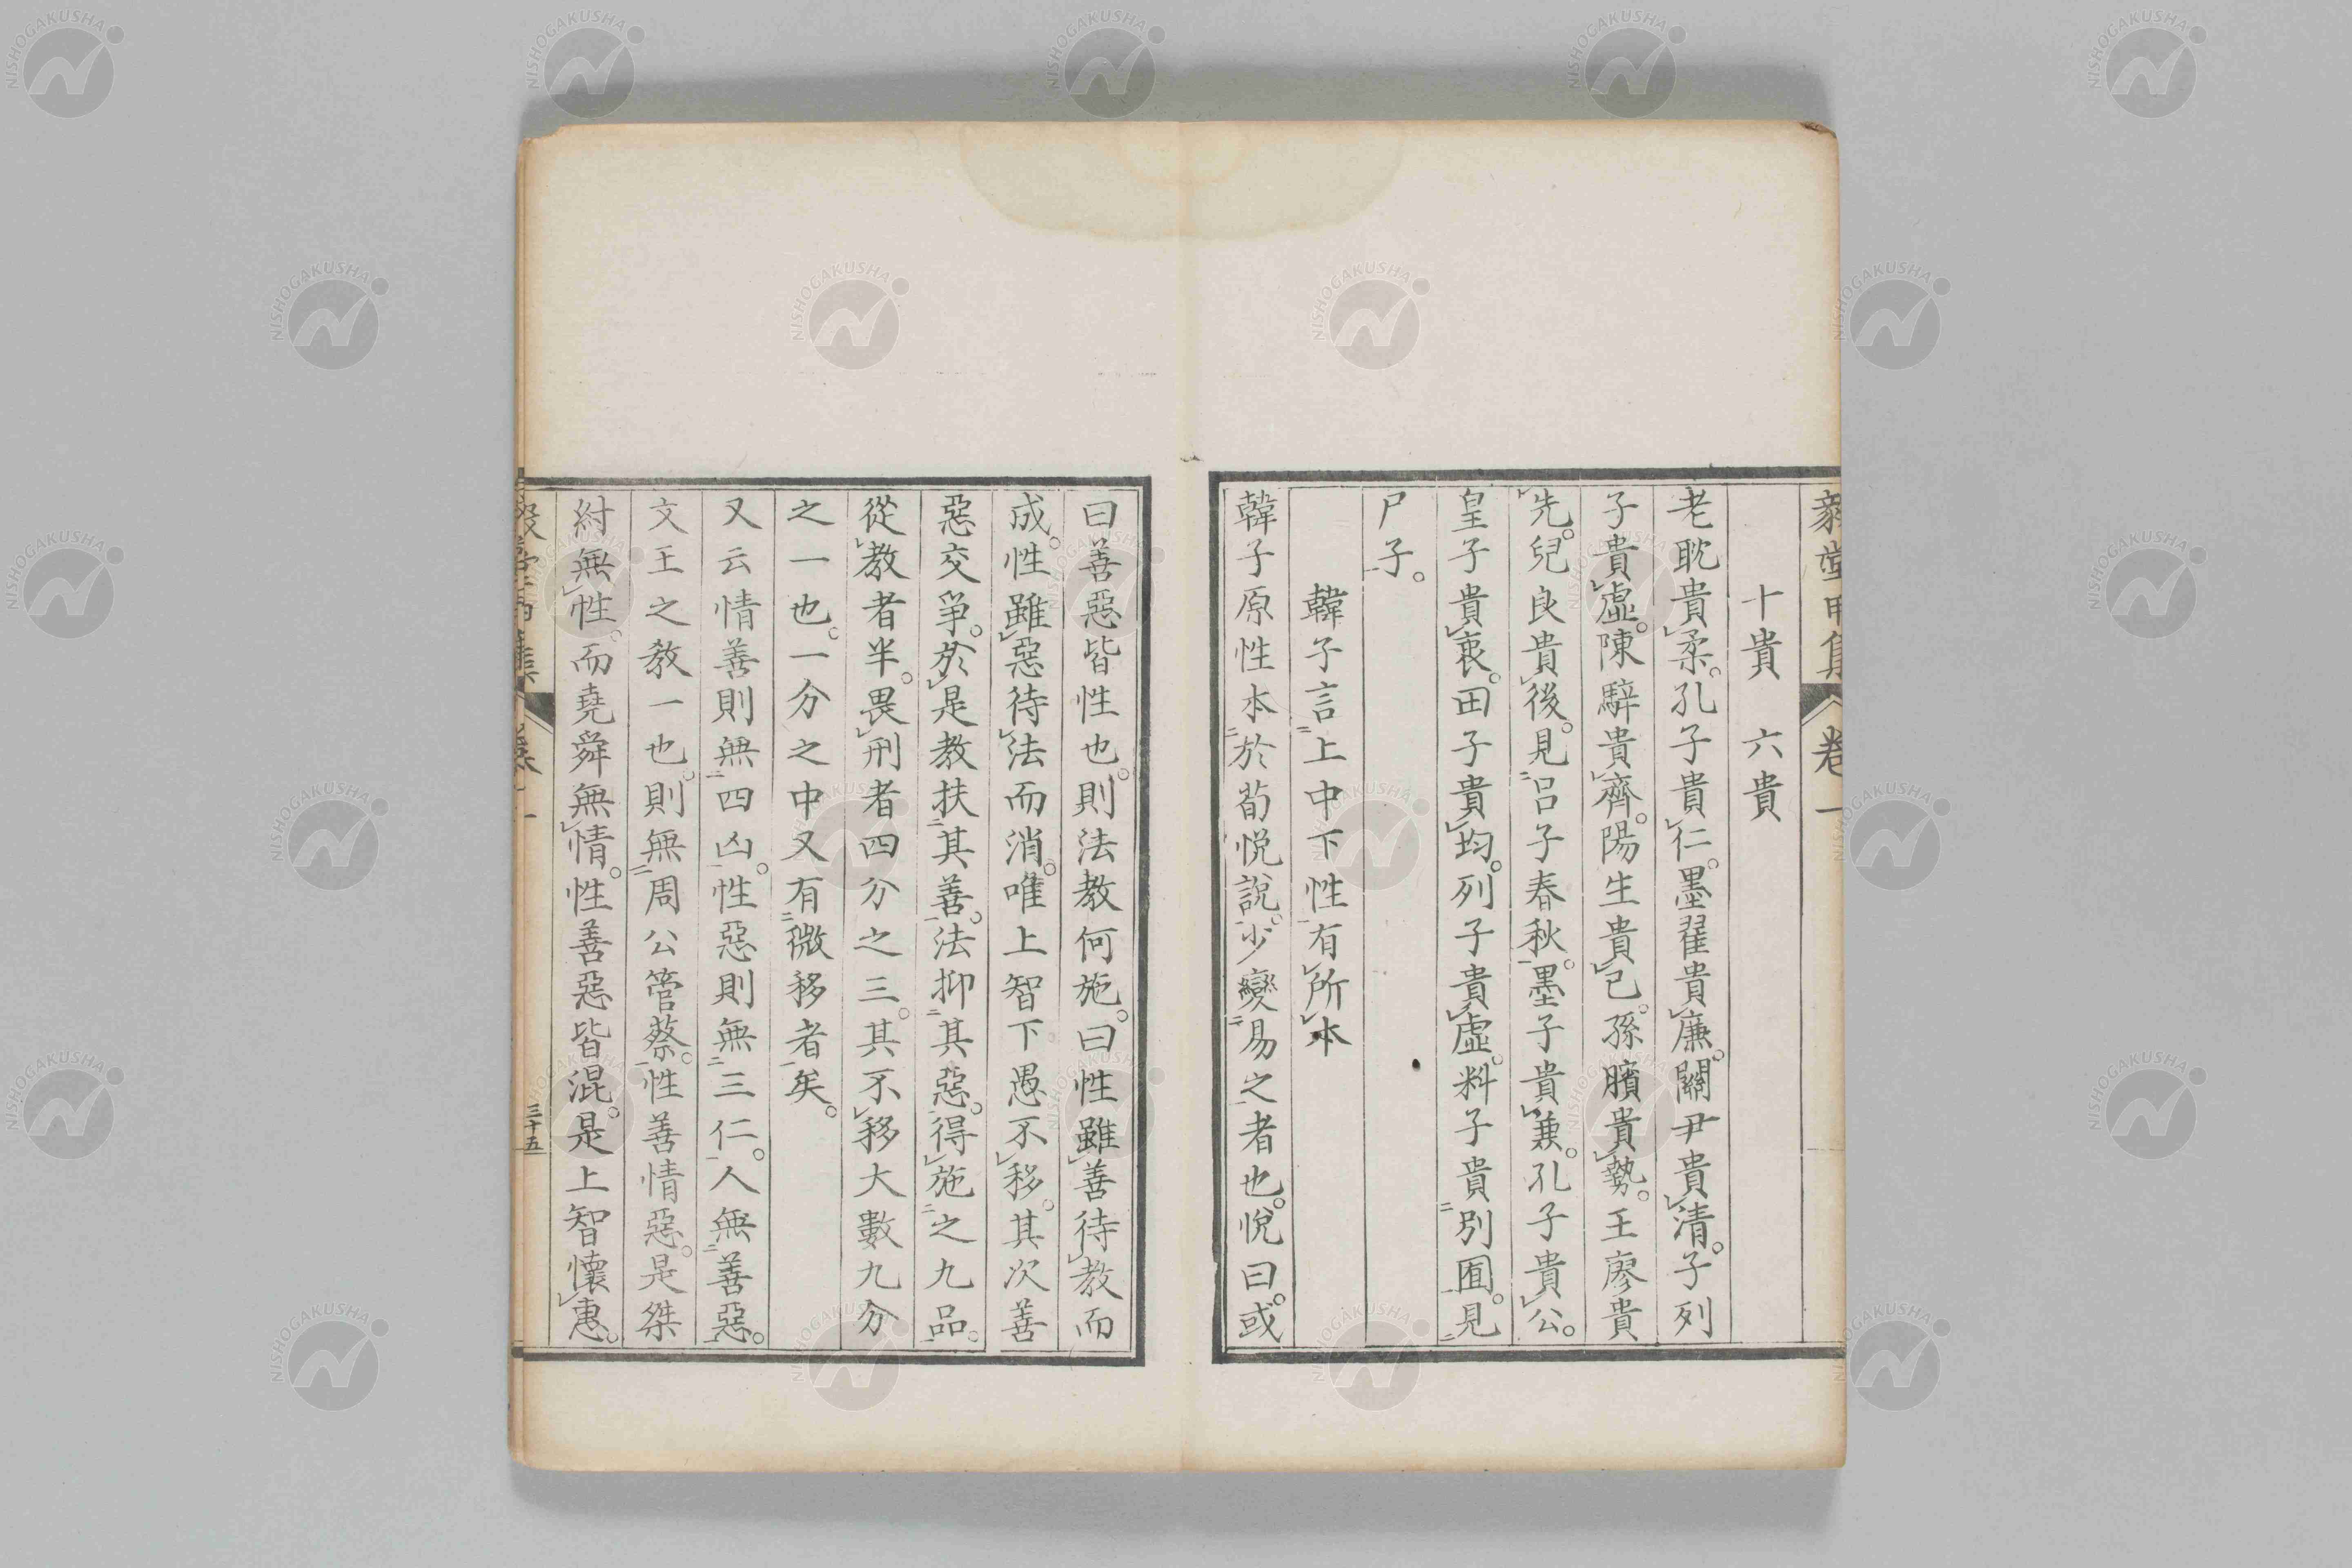 毅堂丙集 卷一
十貴 六貴
老耽貴柔。孔子貴仁。墨翟貴廉。關尹貴清。子列
子貴虛。陳駢貴齊。陽生貴己。孫臏貴勢。王廖貴
先。兒良貴後。見呂子春秋。墨子貴兼。孔子貴公。
皇子貴衷。田子貴均。列子貴虛。料子貴別囿。見
尸子。
韓子言上中下性有所本
韓子原性本於荀悅說。少變易之者也。悅曰。或
曰善惡皆性也。則法教何施。曰性雖善待教而
成。性雖惡待法而消。唯上智下愚不移。其次善
惡交爭。於是教扶其善。法抑其惡。得施之九品。
從教者半。畏刑者四分之三。其不移大數九分
之一也。一分之中又有微移者矣。
又云情善則無四凶。性惡則無三仁。人無善惡。
文王之教一也。則無周公管蔡。性善情惡。是桀
紂無性。而堯舜無情。性善惡皆混。是上智懷惠。
毅堂丙集 卷一 三十五
NISHOGAKUSHA